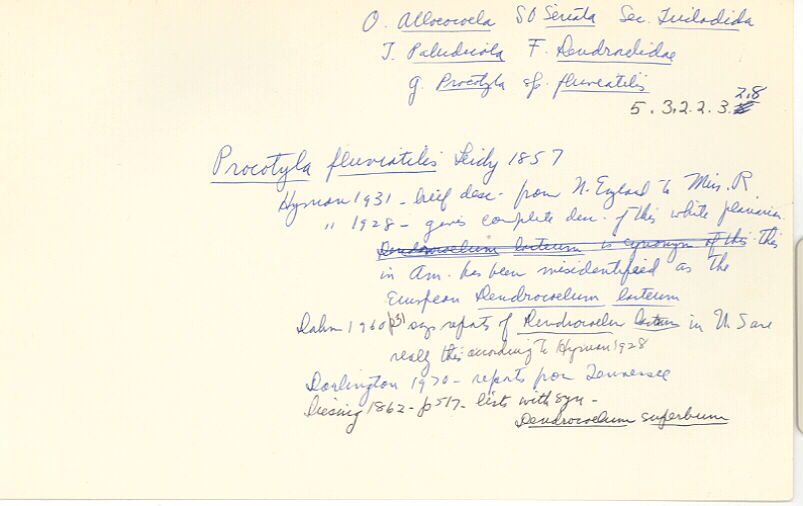 O. Allocoela SO Seriata Sec. Tricladida
T. Paludicola F. Dendrocoelidae
g. Procotyla sp. fluviatilis
5.3.2.2.3. 2.8
Procotyla fluviatilis Leidy 1857
Hyman 1931 - brief desc. from N. England to Miss. R
" 1928 - gives complete des. of this white planarian.
Dendrocoelum lacteum is synonym of this this
in Am. has been misidentified as the
European Dendrocoelum lacteum
Dahm 1960 p31 says reports of Dendrocoelu lacteum in U S are
really this according to Hyman 1928
Darlington 1970 - reports from Tennessee
Diesing 1862 - p517 - lists with syn -
Dendrocoelum superbum